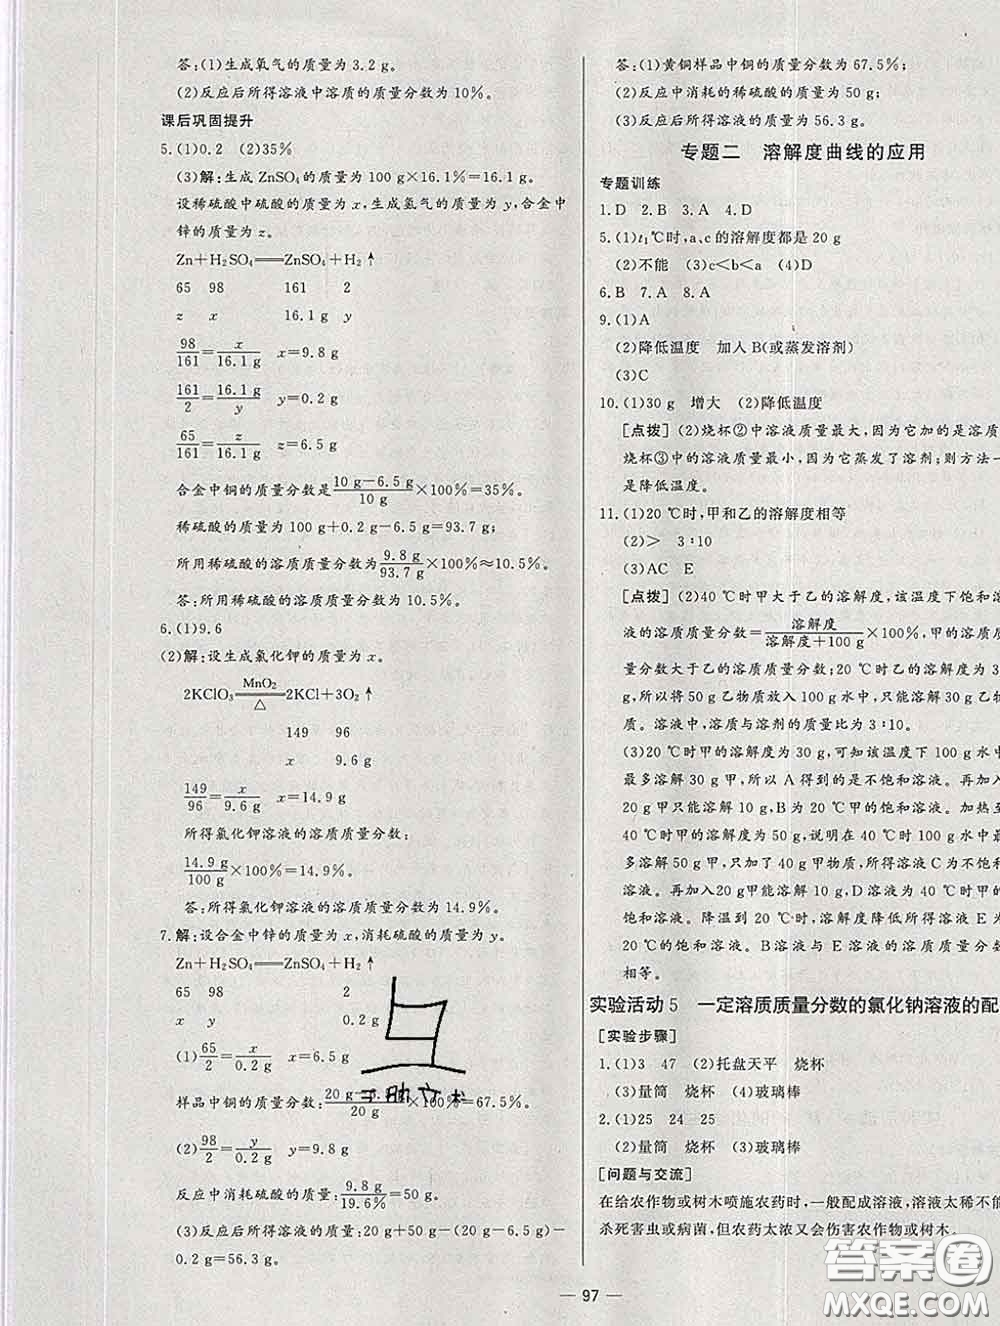 答:(1)生成氧气的质量为3.2 g。
(2)反应后所得溶液中溶质的质量分数为10%。
课后巩固提升
5.(1)0.2 (2)35%
(3)解:生成ZnSO₄的质量为100 g×16.1%=16.1 g。
设稀硫酸中硫酸的质量为x,生成氢气的质量为y,合金中
锌的质量为z。
Zn+H₂SO₄══ZnSO₄+H₂↑
65 98 161 2
z x 16.1 g y
98/161=x/16.1 g x=9.8 g
161/2=16.1 g/y y=0.2 g
65/161=z/16.1 g z=6.5 g
合金中铜的质量分数是(10 g-6.5 g)/10 g×100%=35%。
稀硫酸的质量为100 g+0.2 g-6.5 g=93.7 g;
所用稀硫酸的溶质质量分数为9.8 g/93.7 g×100%≈10.5%。
答:所用稀硫酸的溶质质量分数为10.5%。
6.(1)9.6
(2)解:设生成氯化钾的质量为x。
2KClO₃ ══(MnO₂/△) 2KCl+3O₂↑
149 96
x 9.6 g
149/96=x/9.6 g x=14.9 g
所得氯化钾溶液的溶质质量分数:
14.9 g/100 g×100%=14.9%。
答:所得氯化钾溶液的溶质质量分数为14.9%。
7.解:设合金中锌的质量为x,消耗硫酸的质量为y。
Zn+H₂SO₄══ZnSO₄+H₂↑
65 98 2
x y 0.2 g
(1)65/2=x/0.2 g x=6.5 g
样品中铜的质量分数:20 g- /20 g×100%=67.5%。
(2)98/2=y/0.2 g y=9.8 g
反应中消耗硫酸的质量:9.8 g/19.6%=50 g。
(3)反应后所得溶液的质量:20 g+50 g-(20 g-6.5 g)-
0.2 g=56.3 g。
答:(1)黄铜样品中铜的质量分数为67.5%;
(2)反应中消耗的稀硫酸的质量为50 g;
(3)反应后所得溶液的质量为56.3 g。
专题二 溶解度曲线的应用
专题训练
1.D 2.B 3.A 4.D
5.(1)t₁℃时,a、c的溶解度都是20 g
(2)不能 (3)c<b<a (4)D
6.B 7.A 8.A
9.(1)A
(2)降低温度 加人B(或蒸发溶剂)
(3)C
10.(1)30 g 增大 (2)降低温度
[点拨] (2)烧杯②中溶液质量最大,因为它加的是溶质
烧杯③中的溶液质量最小,因为它蒸发了溶剂;则方法一
是降低温度。
11.(1)20 ℃时,甲和乙的溶解度相等
(2)> 3∶10
(3)AC E
[点拨] (2)40 ℃时甲大于乙的溶解度,该温度下饱和溶
液的溶质质量分数=溶解度/(溶解度+100 g)×100%,甲的溶质质
量分数大于乙的溶质质量分数;20 ℃时乙的溶解度为3
g,所以将50 g乙物质放入100 g水中,只能溶解30 g乙物
质。溶液中,溶质与溶剂的质量比为3∶10。
(3)20 ℃时甲的溶解度为30 g,可知该温度下100 g水中
最多溶解30 g甲,所以A得到的是不饱和溶液。再加入
20 g甲只能溶解10 g,B为20 ℃的饱和溶液。加热至
40 ℃时甲的溶解度为50 g,说明在40 ℃时100 g水中最
多溶解50 g甲,只加了40 g甲物质,所得溶液C为不饱和
溶液。再加入20 g甲能溶解10 g,D溶液为40 ℃时甲的
饱和溶液。降温到20 ℃时,溶解度降低所得溶液E
20 ℃的饱和溶液。B溶液与E溶液的溶质质量分数
相等。
实验活动5 一定溶质质量分数的氯化钠溶液的配
[实验步骤]
1.(1)3 47 (2)托盘天平 烧杯
(3)量筒 烧杯 (4)玻璃棒
2.(1)25 24 25
(2)量筒 烧杯 (3)玻璃棒
[问题与交流]
在给农作物或树木喷施农药时,一般配成溶液,溶液太稀不能
杀死害虫或病菌,但农药太浓又会伤害农作物或树木。
— 97 —
答案圈
MXQE.COM